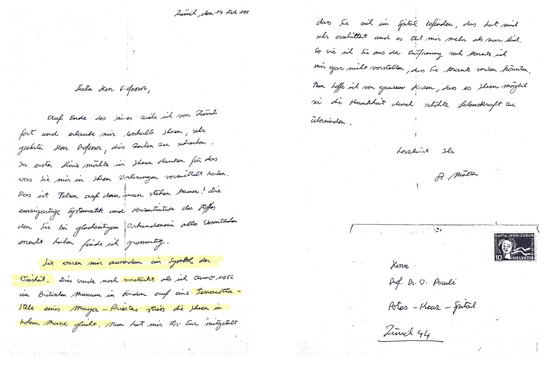 Zürich, den 14 Dez. 1958
Lieber Herr Professor,
Auf Ende des Jahres ziehe ich von Zürich
fort und erlaube mir deshalb Ihnen, sehr
geehrter Herr Professor, diese Zeilen zu schreiben.
In erster Linie möchte ich Ihnen danken für das
was Sie mir in Ihren Vorlesungen vermittelt haben.
Das ist Felsen auf dem man stehen kann! Die
einzigartige Systematik und des Stoffes
den Sie bei gleichzeitigem Vorhandensein alles Wesentlichen
erreicht haben finde ich grossartig.
Sie waren mir ein Symbol der
Weisheit. Dies wurde noch verstärkt als ich anno 1952
im Britischen Museum in London auf eine Terracotta-
Stele eines Maya-Priesters stiess die Ihnen in
hohem Masse gleicht. Nun hat mir mitgeteilt
dass Sie sich im Spital befinden, das hat mich
sehr erschüttert und es tut mir mehr als nur leid.
So wie ich Sie aus der sah konnte ich
mir gar nicht vorstellen, dass Sie krank werden könnten.
Nun hoffe ich von ganzem Herzen, dass es Ihnen möglich
sei die Krankheit durch Lebenskraft zu
überwinden.
Herzlichst Ihr
Müller
HELVETIA
10
Herrn
Prof. Dr. W. Pauli
Rotes-Kreuz-Spital
Zürich 44